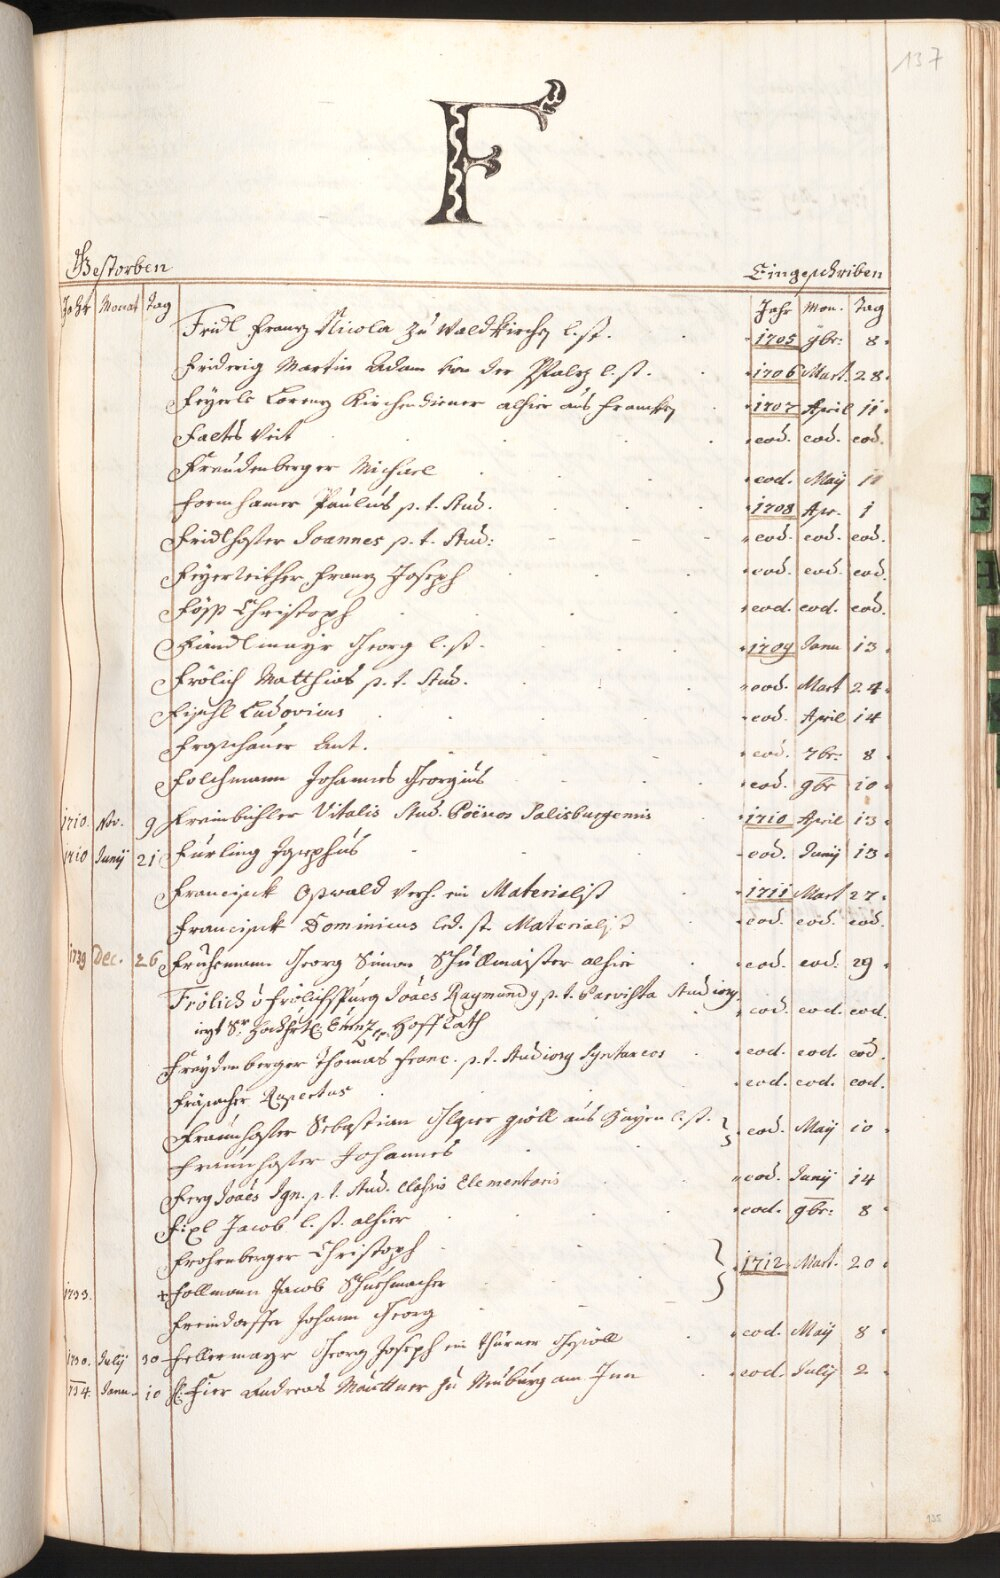 137
F
Gestorben Eingeschriben
Jahr Monat Tag Jahr Mon. Tag
Fridl Franz Nicola zu Waldkirchen l. st. 1705 9br: 8
Friderig Martin Adam von der Pfalz l. st. 1706 Mart. 28
Feyerle Lorenz Kirchendiener alhier aus Francken 1707 April 11
Veit eod. eod. eod.
Freudenberger Michael eod. May 11
Formhamer Paulus p. t. Stud. 1708 Apr. 1
Fridlhofer Joannes p. t. Stud: eod. eod. eod.
Feyerleither Franz Joseph eod. eod. eod.
Christoph eod. eod. eod.
Georg l. st. 1709 Janu 13
Frölich Matthias p. t. Stud. eod. Mart 24
Fischl Ludovicus eod. April 14
Ant. eod. 7br: 8
Folchmann Johannes Georgius eod. 9br 10
1710. Nov. 9 Freinbichler Vitalis Stud. Poëseos Salisburgensis 1710 April 13
1710 Junij 21 Fürling Josephus eod. Junij 13
Francisck Oswald Verh. ein Materialist 1711 Mart 27
Francisck Dominicus led. st. Materialist eod. eod. eod.
1739 Dec. 26 Georg Simon Schullmaister alhier eod. eod. 29
Frölich v Frölichspurg Joaes Raymund9 p. t. Parvista Studiosg eod. eod. eod.
Hoff Rath
Freydenberger Thomas Franc. p. t. Studiosg Syntaxeos eod. eod. eod.
Rupertus eod. eod. eod.
Fraunhofer Sebastian gsöll aus Bayern l. st. } eod. May 10
Fraunhofer Johannes
Ferg Joaes Ign. p. t. Stud. Classis Elementaris eod. Junij 14
Fixl Jacob l. st. alhier eod. 9br: 8
Frohenberger Christoph } 1712 Mart. 20
1733. + Follmann Jacob Schuechmacher
Johann Georg
1730. Julij 30 Fellermayr Georg Joseph ein Thürner Gsöll eod. May 8
1734. Janu. 10 Andreas Mauttner zu Neuburg am Inn eod. Julij 2
135